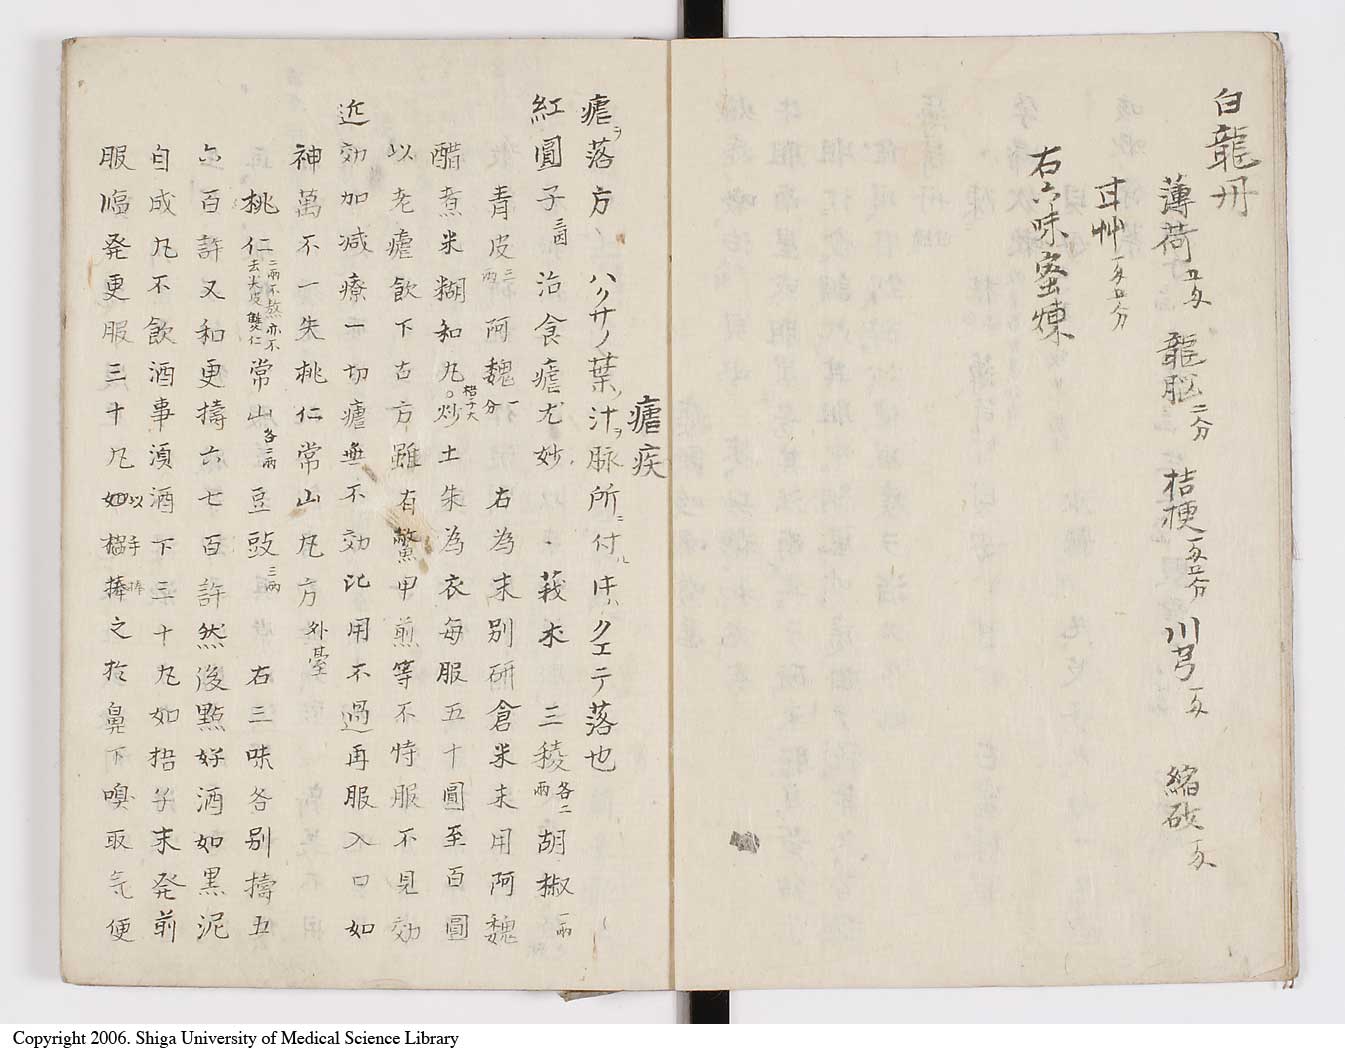 白龍丹
薄荷四匁 龍脳二分 桔梗一匁五分 川芎一匁 縮砂一匁
甘艸一匁五分
右六味蜜煉
瘧疾
瘧ヲ落方 ハクサノ葉ノ汁ヲ脉所ニ付ル ハクエテ落也
紅圓子 治食瘧尤妙 莪朮 三稜各二両 胡椒一両
青皮三両 阿魏一分 右為末別研倉米末用阿魏
醋煮米糊和丸梧子大炒土朱為衣每服五十圓至百圓
以老瘧飲下古方雖有鱉甲煎等不恃服不見効
近効加减療一切瘧無不効比用不過再服入口如
神萬不一朱桃仁常山丸方外臺
桃仁二両不熬亦不去尖皮雙仁 常山各三両 豆豉三両 右三味各別擣五
六百許又和更擣六七百許然後點好酒如黒泥
自成丸不飲酒事湏酒下三十丸如梧子末発前
服臨発更服三十丸如以榴手捧之於鼻下嗅取気便
Copyright 2006. Shiga University of Medical Science Library